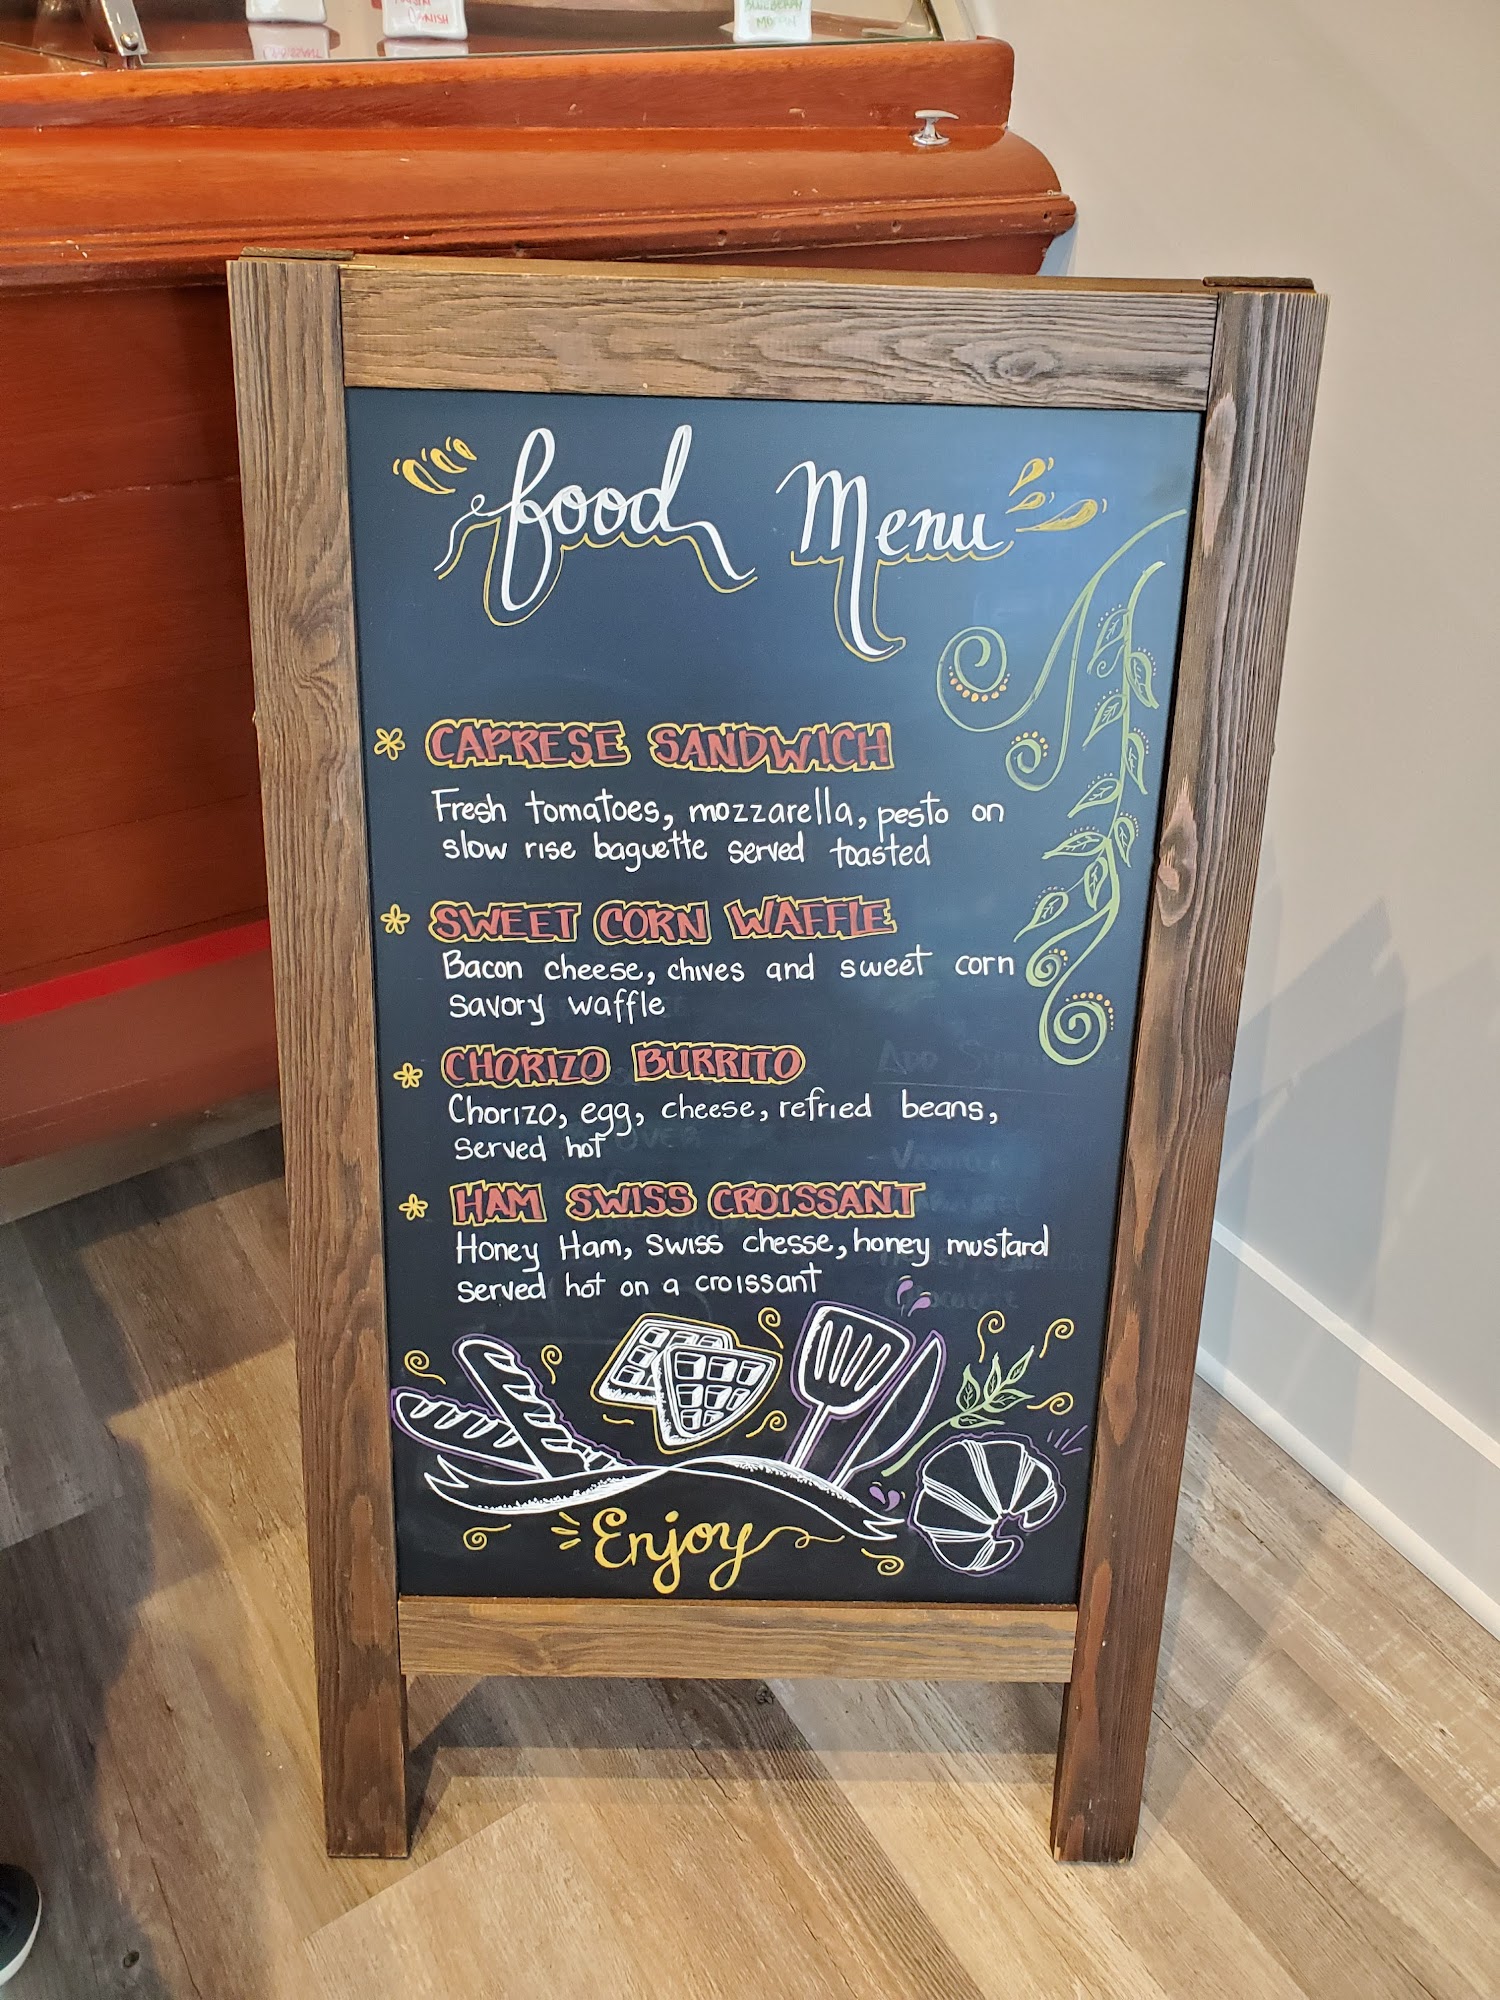 DANISH
BLUEBERRY
MUFFIN
food Menu
CAPRESE SANDWICH
Fresh tomatoes, mozzarella, pesto on
slow rise baguette served toasted
SWEET CORN WAFFLE
Bacon cheese, chives and sweet corn
savory waffle
CHORIZO BURRITO
Chorizo, egg, cheese, refried beans,
served hot
HAM SWISS CROISSANT
Honey Ham, swiss chesse, honey mustard
served hot on a croissant
Enjoy